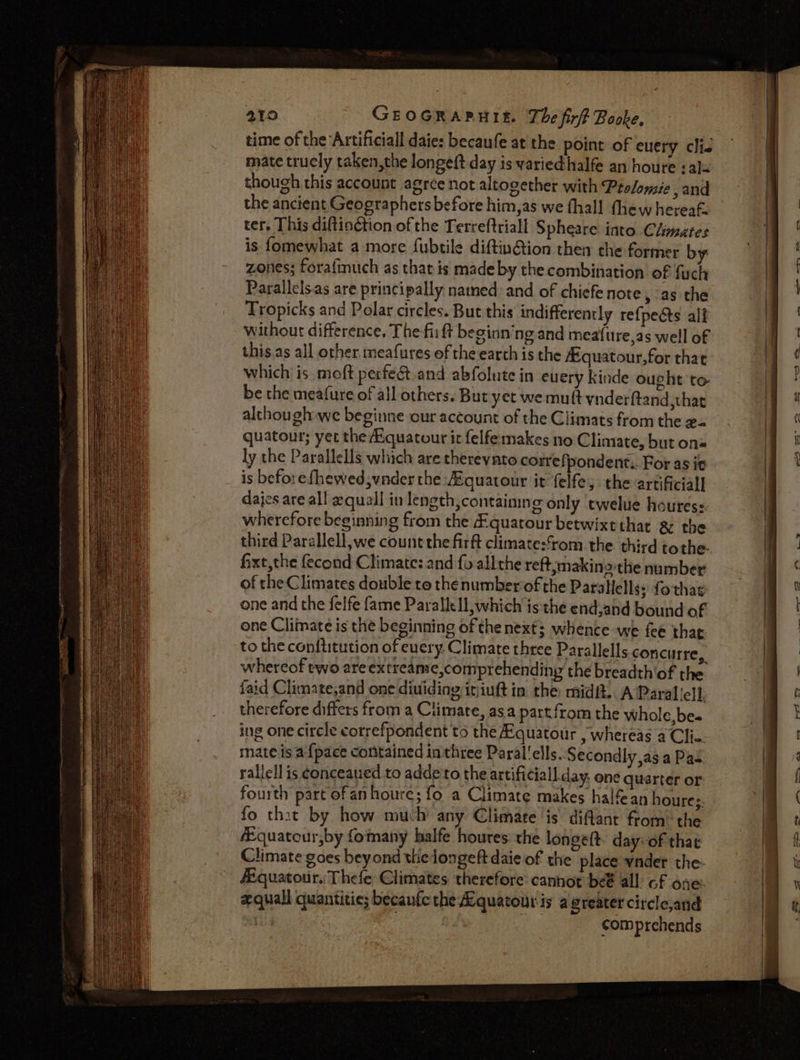 210 GEOGRAPHIE. The first Booke.
time of the Artificiall daie: because at the point of euery cli-
mate truely taken,the longeſt day is varied halfe an houre : al-
though this account agree not altogether with Ptolomie , and
the ancient Geographers before him,as we ſhall ſhew hereaf-
ter. This diſtinction of the Terreſtriall Spheare into Climates
is ſomewhat a more ſubtile diſtinction then the former by
zones; foraſmuch as that is made by the combination of ſuch
Parallels as are principally named and of chiefe note , as the
Tropicks and Polar circles. But this indifferently reſpects all
without difference. The firſt beginning and meaſure,as well of
this as all other meaſures of the earth is the Æquatour,for that
which is moſt perfect and abſolute in euery kinde ought to
be the meaſure of all others. But yet we muſt vnderſtand,that
although we beginne our account of the Climats from the æ-
quatour; yet the Æquatour it ſelfe makes no Climate, but on-
ly the Parallells which are therevnto correſpondent. For as it
is before ſhewed,vnder the Æquatour it ſelfe, the artificiall
daies are all æquall in length,containing only twelue houres:
wherefore beginning from the Æquatour betwixt that & the
third Parallell,we count the firſt climate:from the third to the
ſixt,the ſecond Climate: and ſo all the reſt,making the number
of the Climates double to the number of the Parallells; ſo that
one and the ſelfe ſame Parallell,which is the end,and bound of
one Climate is the beginning of the next; whence we ſee that
to the conſtitution of euery Climate three Parallells concurre,
whereof two are extreame,comprehending the breadth of the
ſaid Climate,and one diuiding it iuſt in the midſt. A Parallell
therefore differs from a Climate, as a part from the whole,be-
ing one circle correſpondent to the Æquatour , whereas a Cli-
mate is a ſpace contained in three Parallells. Secondly,as a Pa-
rallell is conceaued to adde to the artificiall day one quarter or
fourth part of an houre; ſo a Climate makes halfe an houre;
ſo that by how much any Climate is diſtant from the
Æquatour,by ſo many halfe houres the longeſt day of that
Climate goes beyond the longeſt daie of the place vnder the
Æquatour. Theſe Climates therefore cannot beê all of one
æquall quantitie; becauſe the Æquatour is a greater circle,and
comprehends